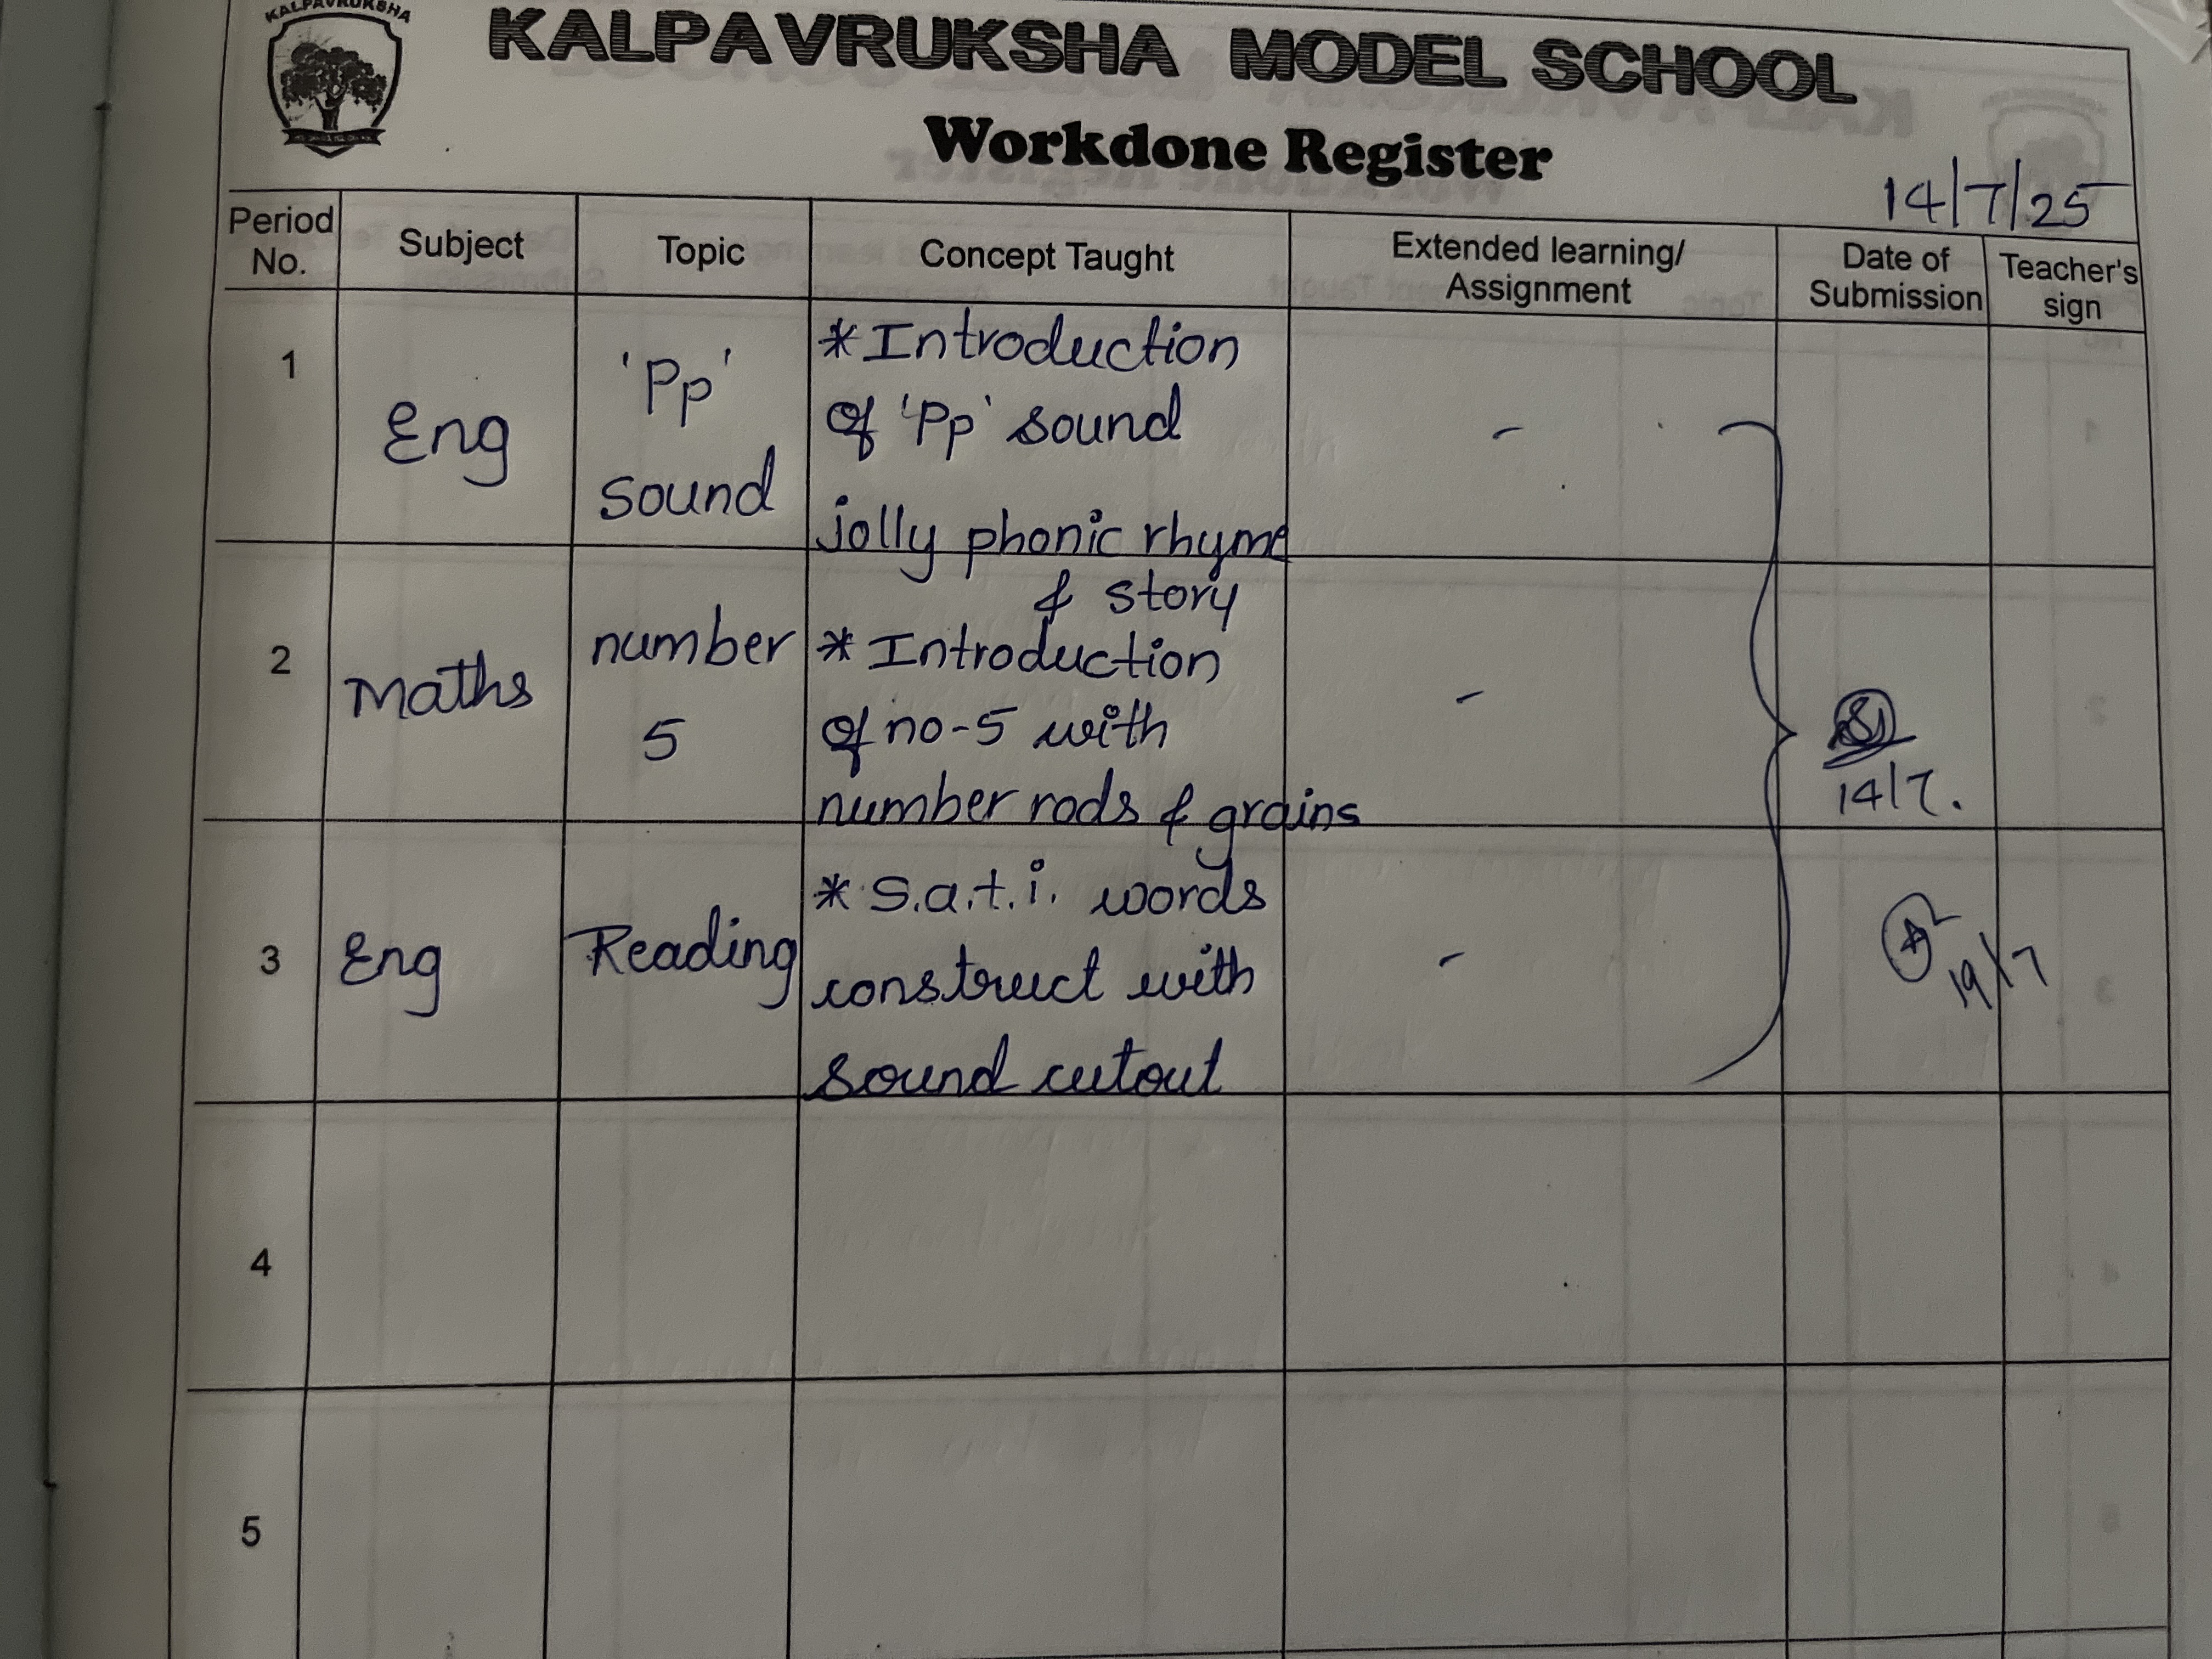 KALPAVRUKSHA
KALPAVRUKSHA MODEL SCHOOL
Workdone Register
14/7/25
Period No.
Subject
Topic
Concept Taught
Extended learning/
Assignment
Date of
Submission
Teacher's
sign
1
Eng
'Pp'
sound
* Introduction
of 'Pp' sound
jolly phonic rhyme
& story
-
2
Maths
number
5
* Introduction
of no-5 with
number rods & grains
-
14/7.
3
Eng
Reading
* s.a.t.i. words
construct with
sound cutout
-
19/7
4
5